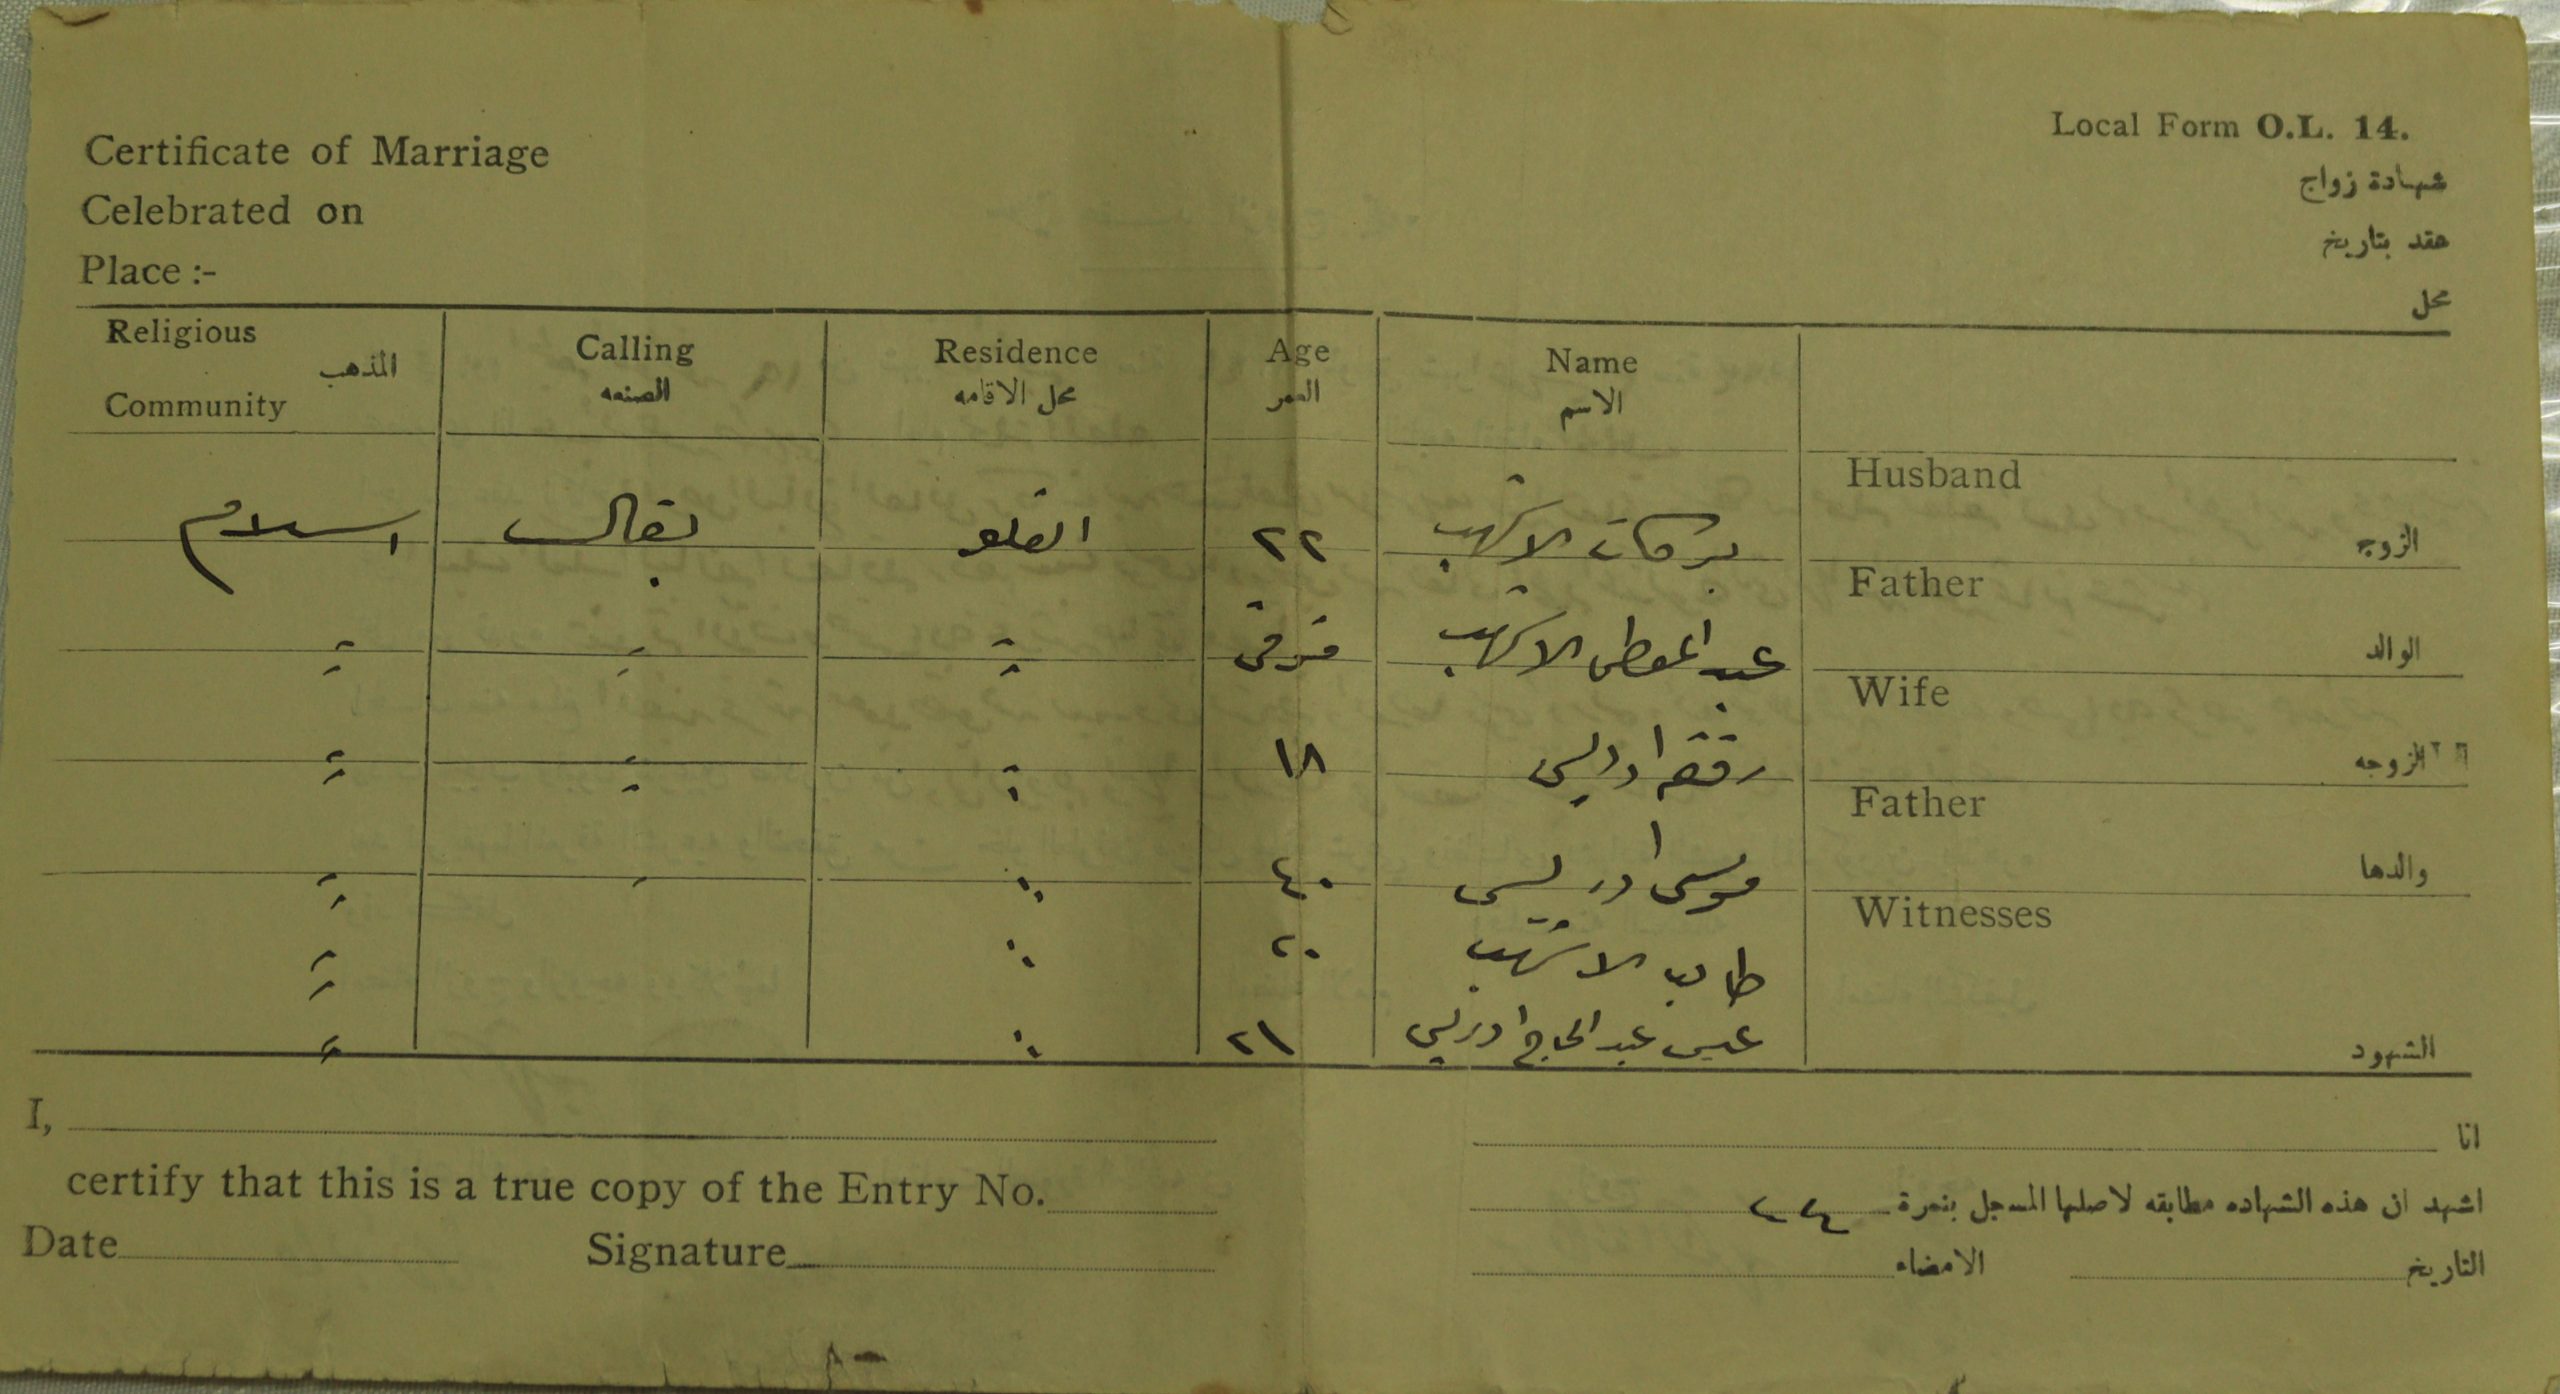 Local Form O.L. 14.
Certificate of Marriage
شهادة زواج
Celebrated on
عقد بتاريخ
Place :-
محل
Religious Community المذهب
Calling الصنعه
Residence محل الاقامه
Age العمر
Name الاسم
Husband الزوج
بركات الاشهب ٢٢ بقال اسلام
Father الوالد
عبد المعطي الاشهب " " "
Wife الزوجه
رقيه ادريس ١٨ " " "
Father والدها
موسى ادريس ٤٠ " " "
Witnesses الشهود
طالب الاشهب ٢٠ " "
عيسى عبد الحاج ادريس ٢١ " "
I,
انا
certify that this is a true copy of the Entry No.
اشهد ان هذه الشهاده مطابقه لاصلها المسجل بنمرة
Date Signature
التاريخ الامضاء